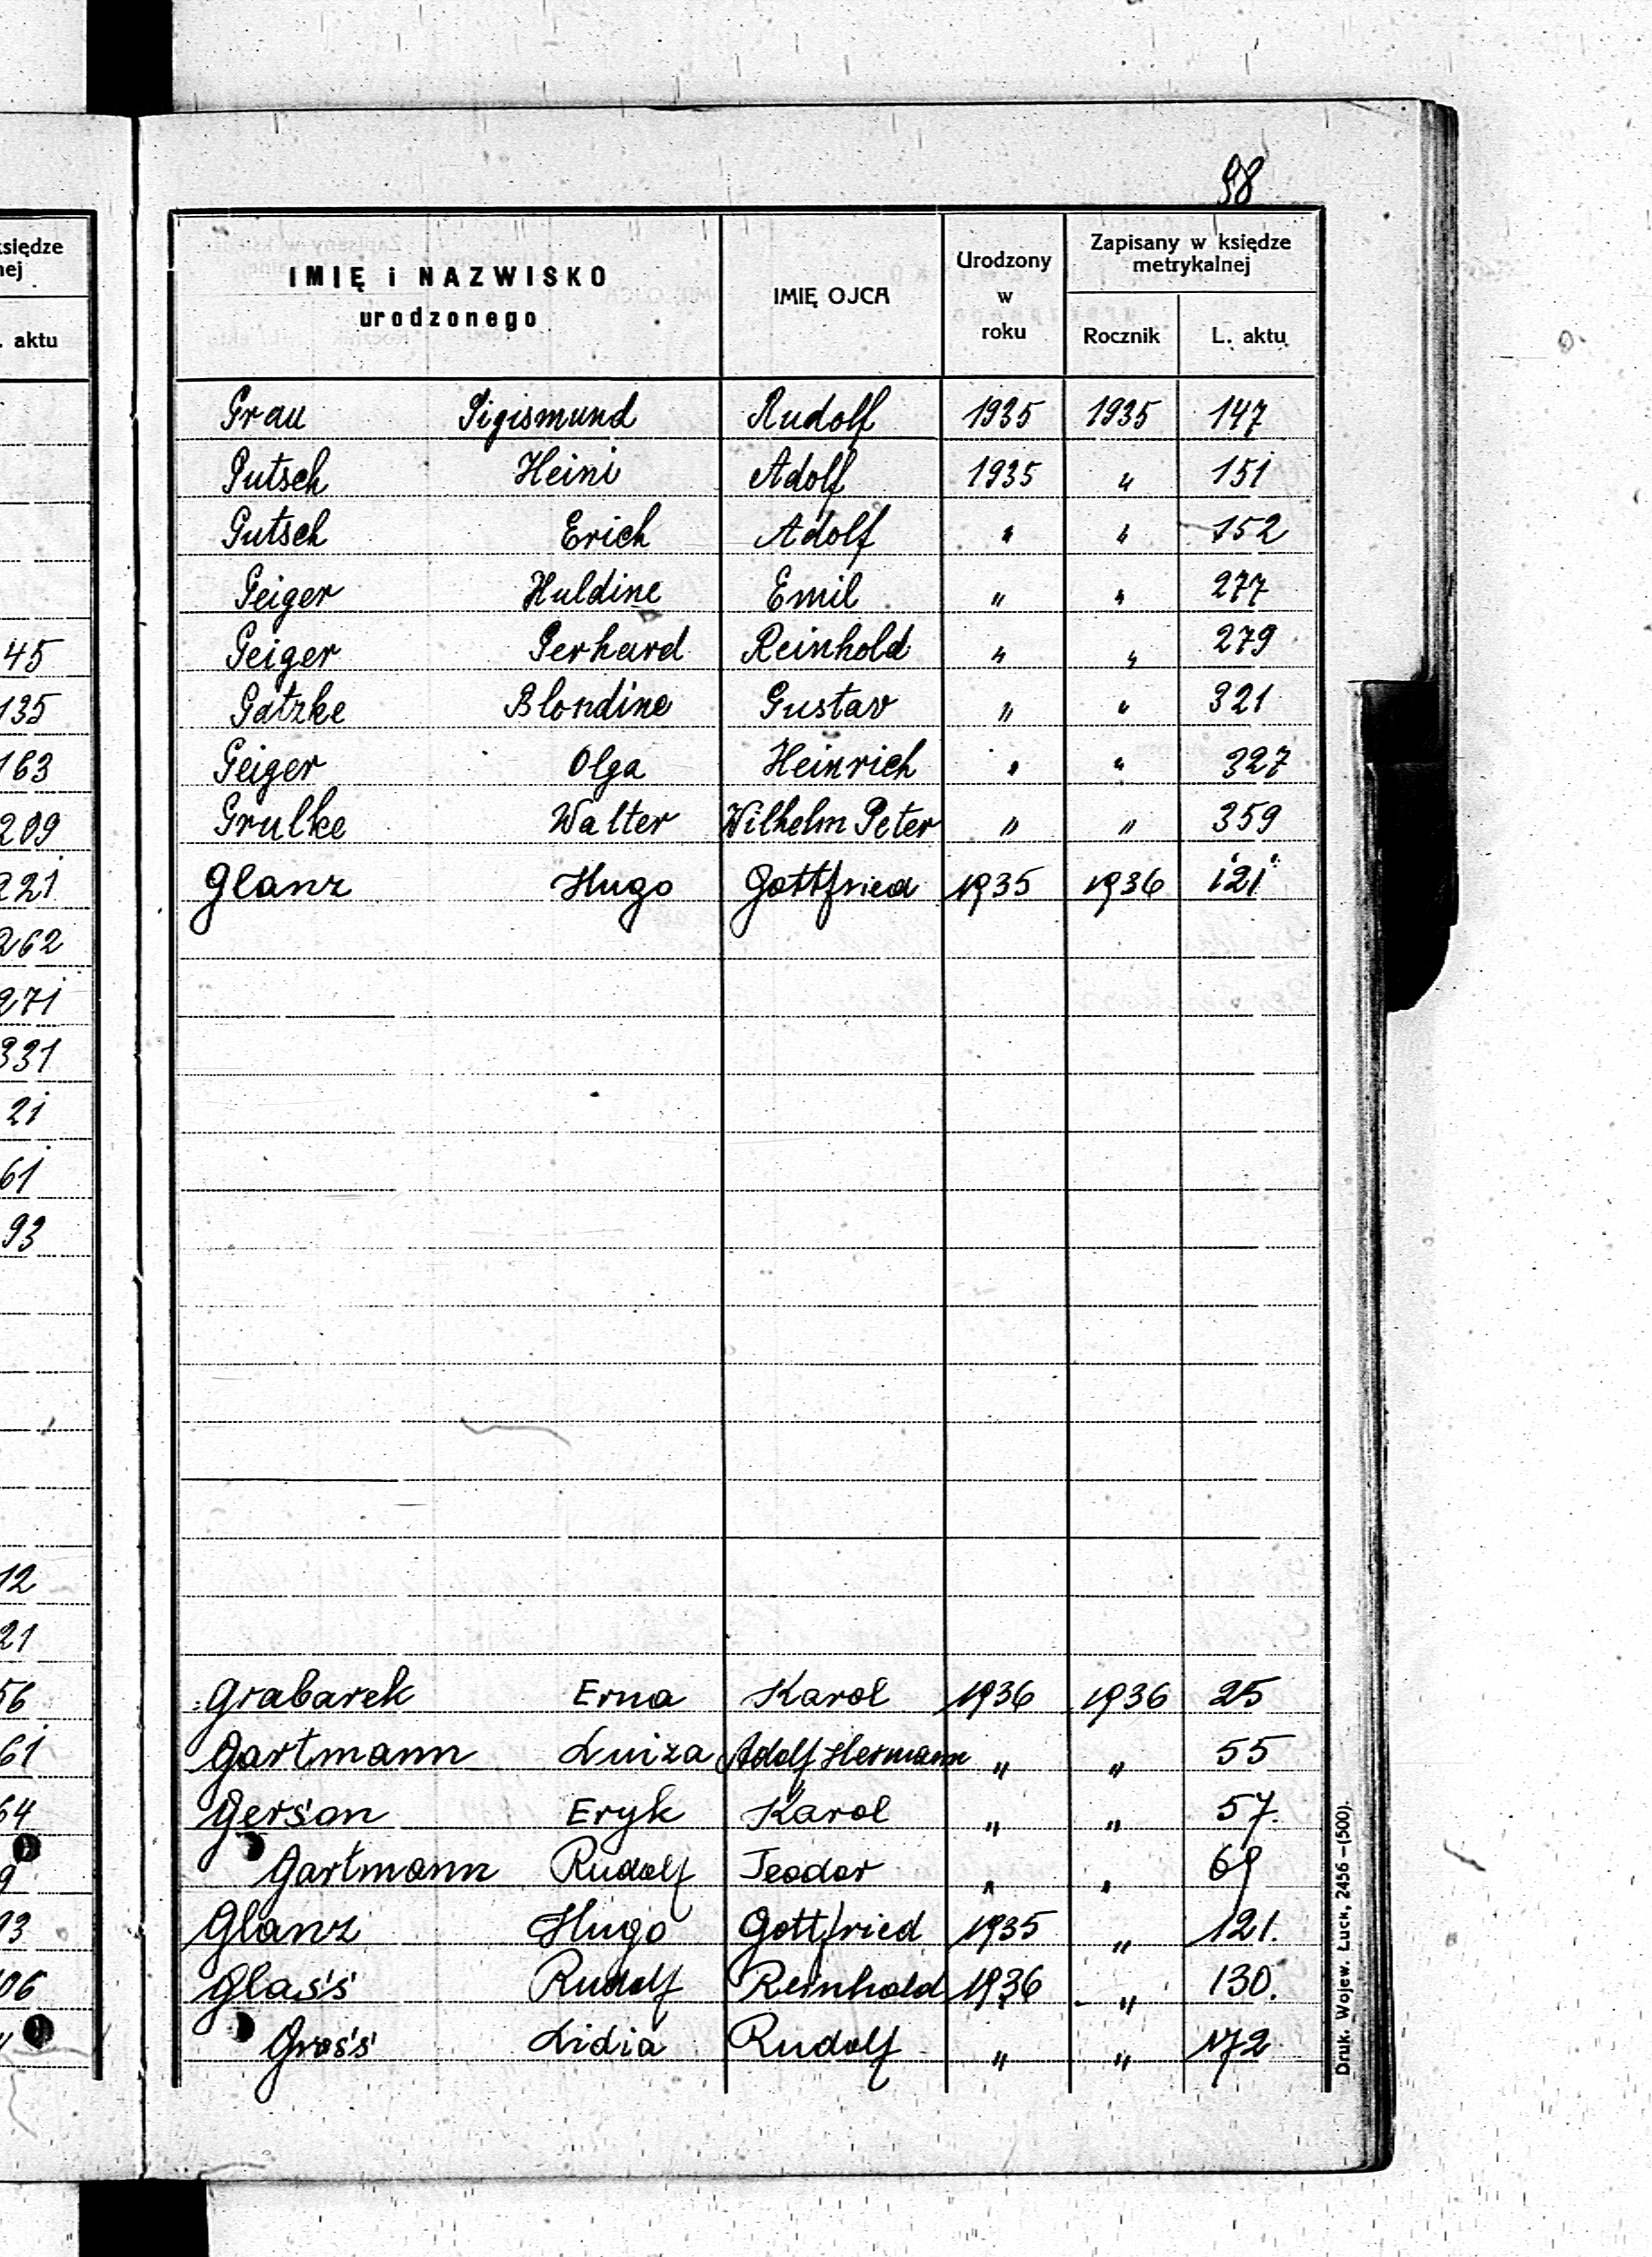 98
księdze
nej
. aktu
45
135
163
209
221
262
271
331
21
61
93
12
21
56
61
64
9
93
06
IMIĘ i NAZWISKO
urodzonego
IMIĘ OJCA
Urodzony
w
roku
Zapisany w księdze
metrykalnej
Rocznik
L. aktu
Grau Sigismund Rudolf 1935 1935 147
Gutsch Heini Adolf 1935 " 151
Gutsch Erich Adolf " " 152
Geiger Huldine Emil " " 277
Geiger Gerhard Reinhold " " 279
Gatzke Blondine Gustav " " 321
Geiger Olga Heinrich " " 327
Grulke Walter Wilhelm Peter " " 359
Glanz Hugo Gottfried 1935 1936 121
Grabarek Erna Karol 1936 1936 25
Gartmann Luiza Adolf Hermann " " 55
Gerson Eryk Karol " " 57.
Gartmann Rudolf Teodor " " 69
Glanz Hugo Gottfried 1935 " 121.
Glass Rudolf Reinhold 1936 " 130.
Gross Lidia Rudolf " " 172
Druk. Wojew. Łuck, 2456—(500).